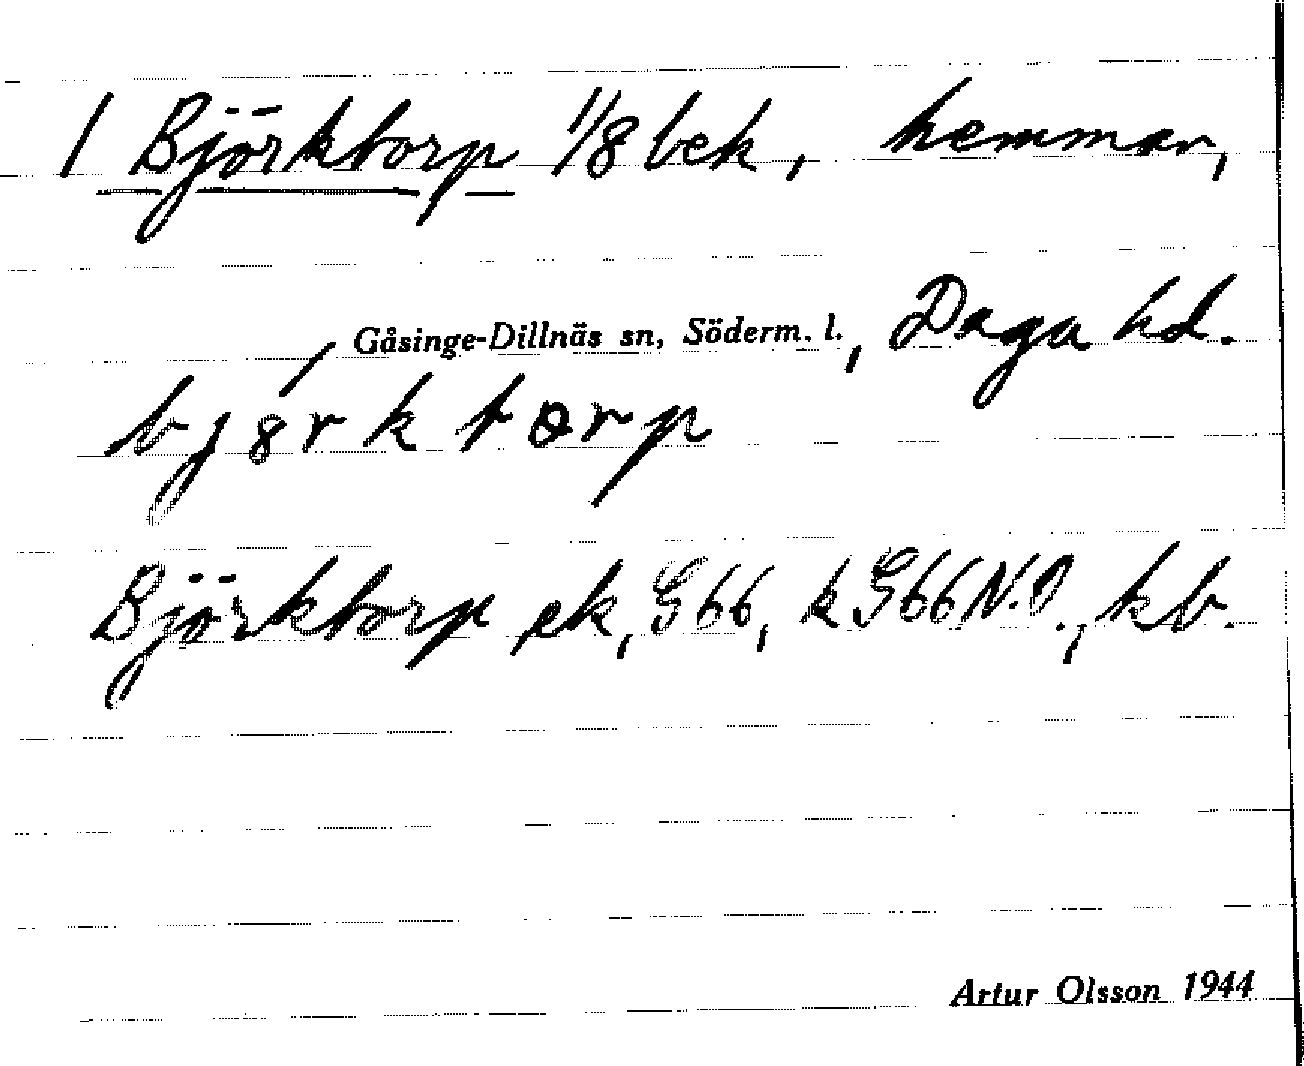 1 Björktorp 1/8 bek, hemman,
Gåsinge-Dillnäs sn, Söderm. l., Daga hd.
bj8́rktorp
Björktorp ek, G66, k G66 N.O., kb.
Artur Olsson 1944